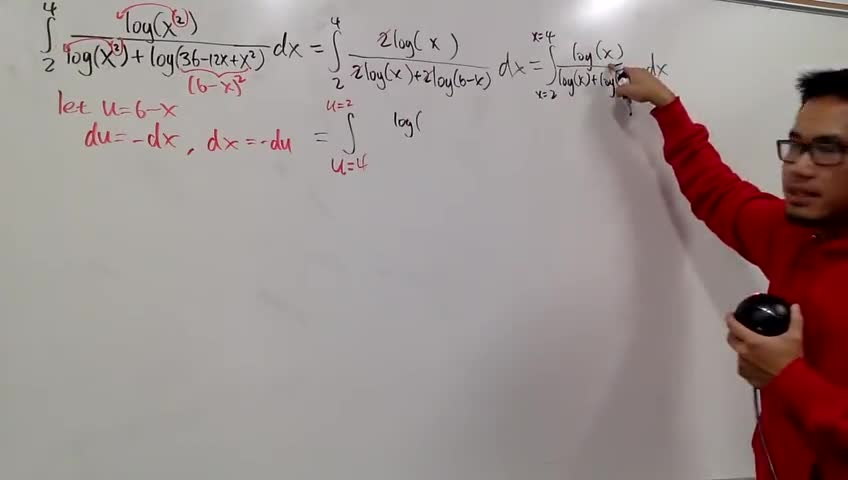 ∫_2^4 log(x^2) / (log(x^2) + log(36-12x+x^2)) dx = ∫_2^4 2log(x) / (2log(x)+2log(6-x)) dx = ∫_{x=2}^{x=4} log(x) / (log(x)+log( dx
(6-x)^2
let u=6-x
du=-dx, dx=-du = ∫_{u=4}^{u=2} log(